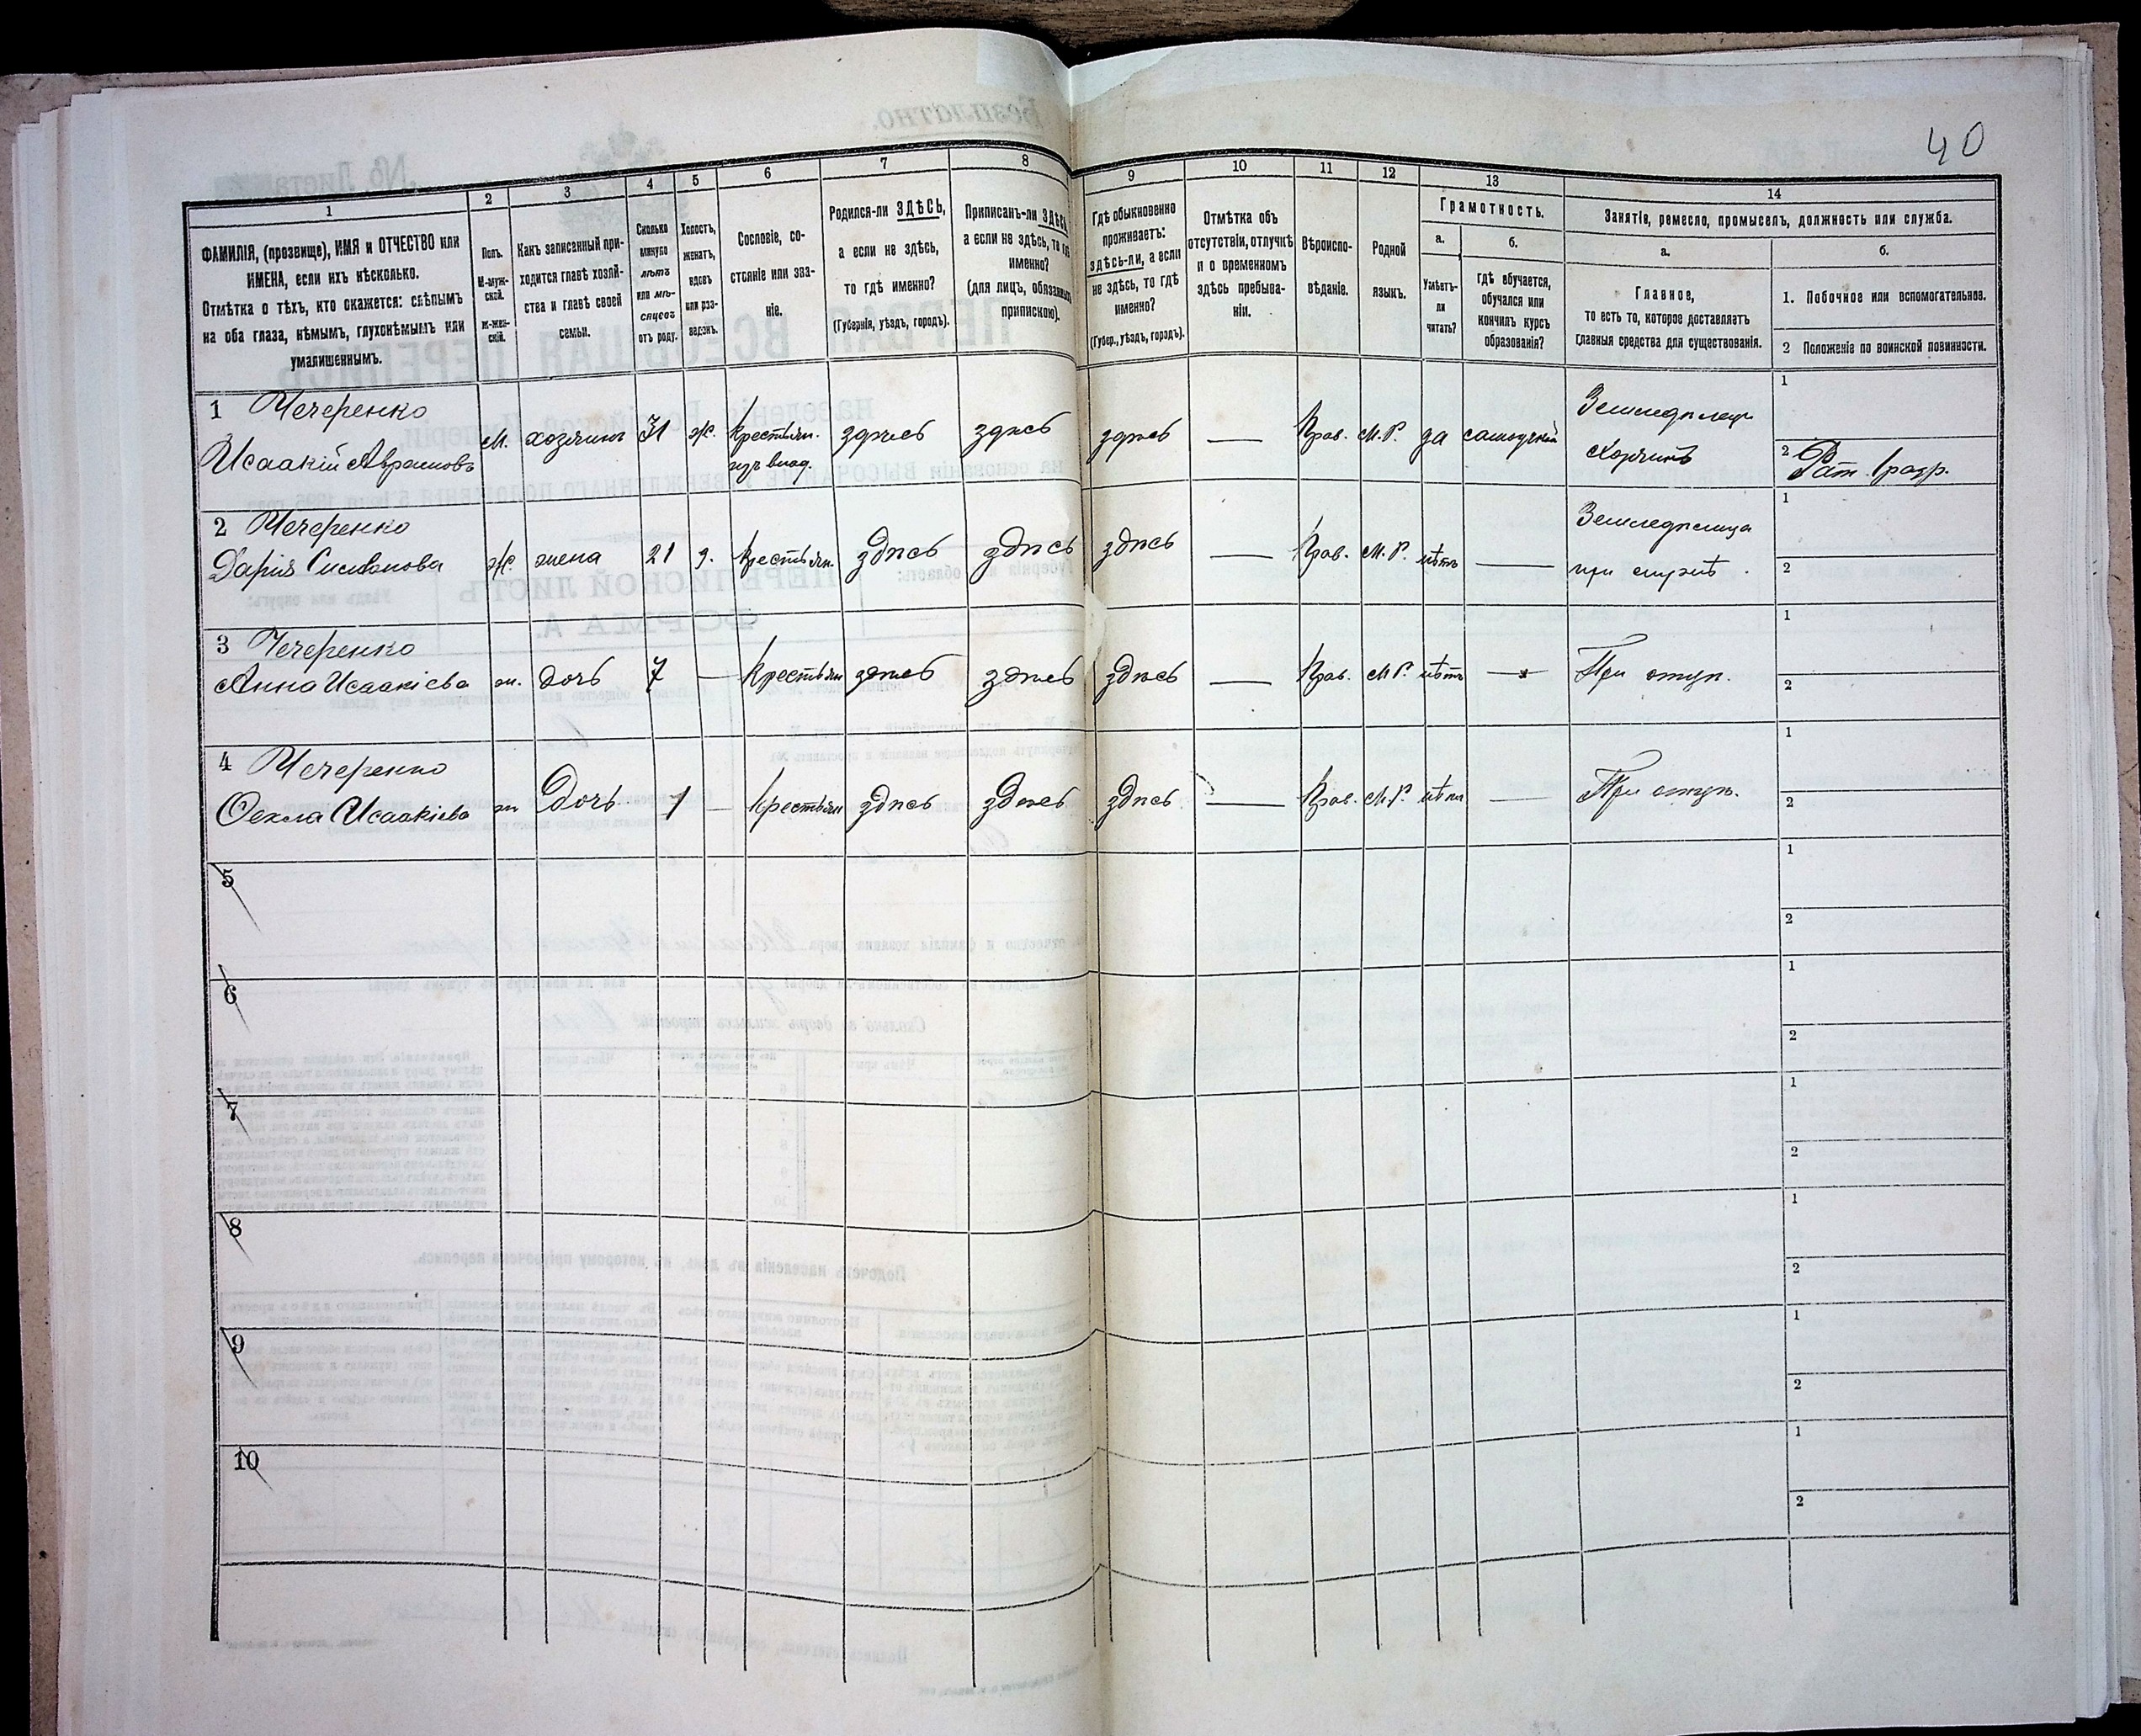 40
1
2
3
4
5
6
7
8
9
10
11
12
13
14
ФАМИЛІЯ, (прозвище), ИМЯ и ОТЧЕСТВО или
ИМЕНА, если ихъ нѣсколько.
Отмѣтка о тѣхъ, кто окажется: слѣпымъ
на оба глаза, нѣмымъ, глухонѣмымъ или
умалишеннымъ.
Полъ.
М-муж-
ской.
Ж-жен-
скій.
Какъ записанный при-
ходится главѣ хозяй-
ства и главѣ своей
семьи.
Сколько
минуло
лѣтъ
или мѣ-
сяцевъ
отъ роду.
Холостъ,
женатъ,
вдовъ
или раз-
веденъ.
Сословіе, со-
стояніе или зва-
ніе.
Родился-ли ЗДѢСЬ,
а если не здѣсь,
то гдѣ именно?
(Губернія, уѣздъ, городъ).
Приписанъ-ли ЗДѢСЬ,
а если не здѣсь, то гдѣ
именно?
(для лицъ, обязанныхъ
припискою).
Гдѣ обыкновенно
проживаетъ:
здѣсь-ли, а если
не здѣсь, то гдѣ
именно?
(Губер., уѣздъ, городъ).
Отмѣтка объ
отсутствіи, отлучкѣ
и о временномъ
здѣсь пребыва-
ніи.
Вѣроиспо-
вѣданіе.
Родной
языкъ.
Грамотность.
а.
Умѣетъ-
ли
читать?
б.
Гдѣ обучается,
обучался или
кончилъ курсъ
образованія?
Занятіе, ремесло, промыселъ, должность или служба.
а.
Главное,
то есть то, которое доставляетъ
главныя средства для существованія.
б.
1. Побочное или вспомогательное.
2 Положеніе по воинской повинности.
1 Чечеренко
Исаакій Аврамовъ
М. хозяинъ 31 ж. Крестьян. здѣсь здѣсь здѣсь — Прав. М.Р. да
Хозяинъ
1
2 Рат. 1 разр.
2 Чечеренко
Дарія
ж. жена 21 з. Крестьян. здѣсь здѣсь здѣсь — Прав. М.Р. нѣтъ —
1
2
3 Чечеренко
Анна Исаакіева ж. дочь 7 — Крестьян здѣсь здѣсь здѣсь — Прав. М.Р. нѣтъ — При отцѣ.
1
2
4 Чечеренко
Ѳекла Исаакіева ж Дочь 1 — Крестьян здѣсь здѣсь здѣсь — Прав. М.Р. нѣтъ — При отцѣ.
1
2
5
1
2
6
1
2
7
1
2
8
1
2
9
1
2
10
1
2